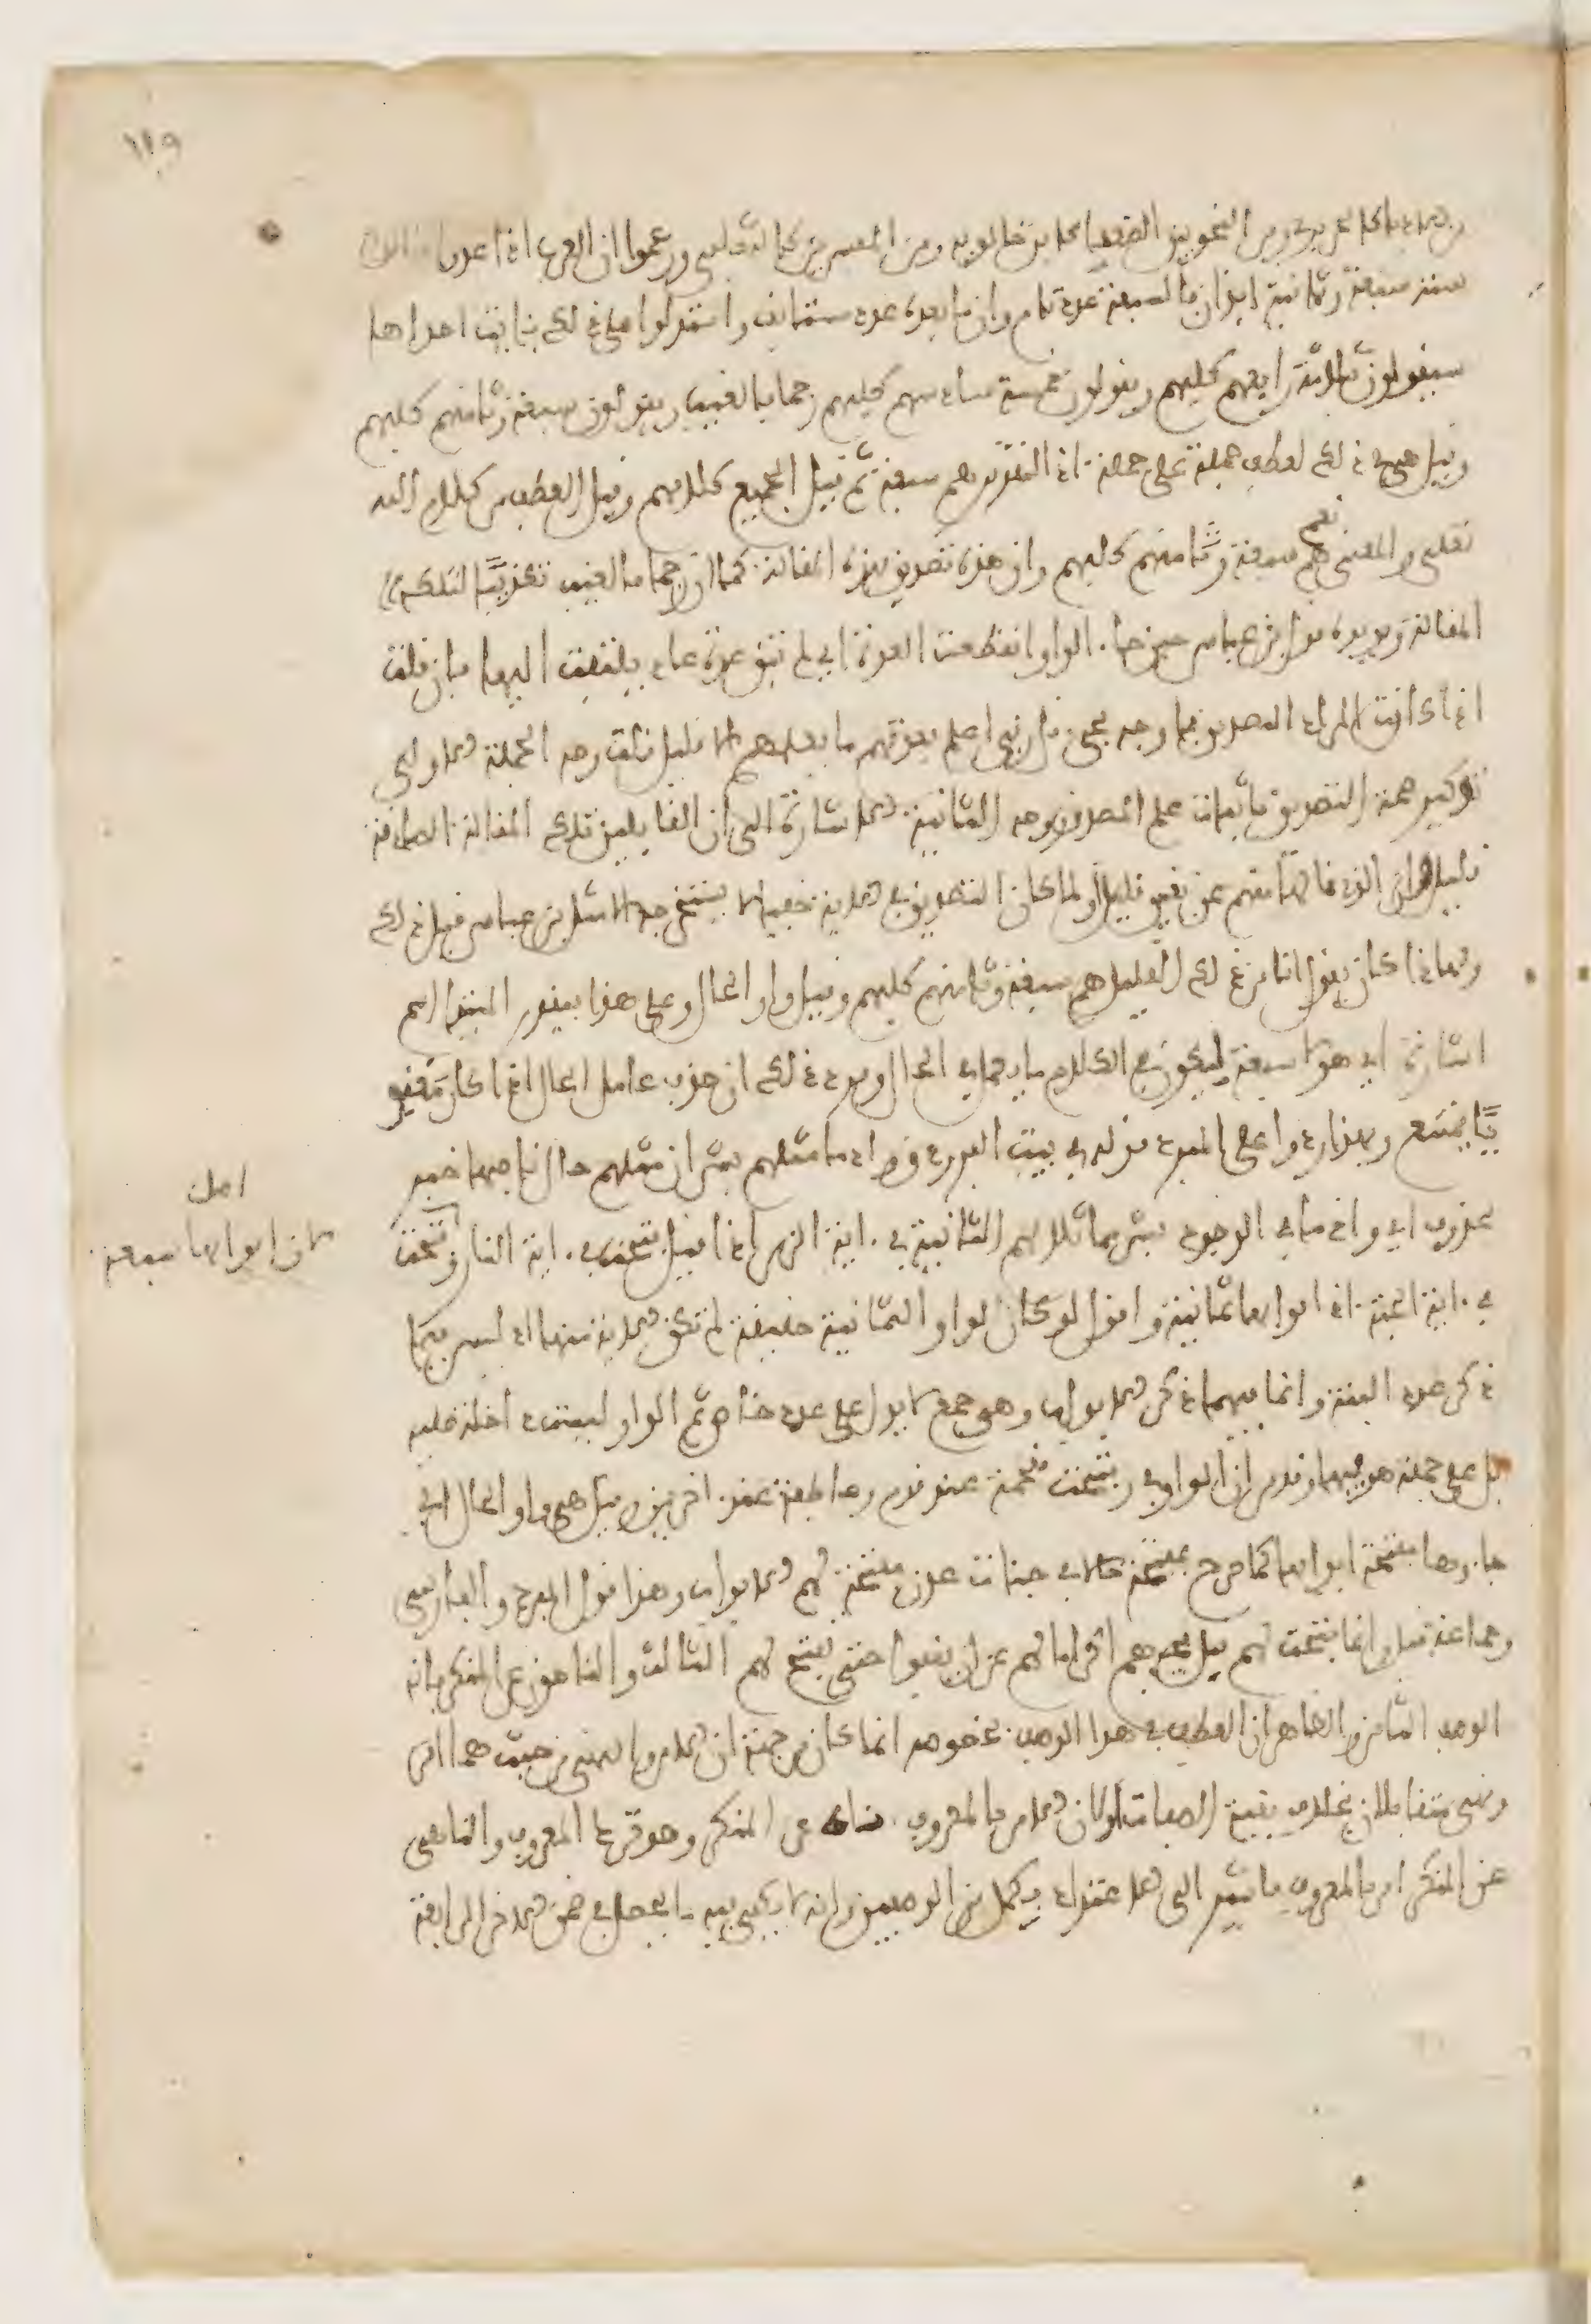 ١١٩
من الأدباء كالحريري ومن النحويين الضعفاء كابن خالويه ومن المفسرين كالثعلبي وزعموا أن العرب إذا عدوا قالوا
ستة سبعة وثمانية إيذانا بأن السبعة عدد تام وأن ما بعده عدد مستأنف واستدلوا على ذلك بآيات إحداها
سيقولون ثلاثة رابعهم كلبهم ويقولون خمسة سادسهم كلبهم رجما بالغيب ويقولون سبعة وثامنهم كلبهم
وقيل هي في ذلك لعطف جملة على جملة إذ التقدير هم سبعة ثم قيل الجميع كلامهم وقيل العطف من كلام الله
تعلى والمعنى نعم هم سبعة وثامنهم كلبهم وإن هذه تصديق لهذه المقالة كما أن رجما بالغيب تكذيب لتلك
المقالة ويؤيده قول ابن عباس حين جاء الواو انقطعت العدة أي لم تبق عدة عاد يلتفت إليها فإن قلت
إذا كانت المراد التصديق فما وجه مجيء قل ربي أعلم بعدتهم ما يعلمهم الا قليل قلت وجه الجملة الأولى
توكيد صحة التصديق بإثبات علم المصدق ووجه الثانية الإشارة إلى أن القايلين تلك المقالة الصادقة
قليل وأن الذي قالها منهم عن يقين قليل أو لما كان التصديق في الآية خفيا لا يستخرجه الا مثل ابن عباس قيل ذلك
ولهذا كان يقول انا من ذلك القليل هم سبعة وثامنهم كلبهم وقيل واو الحال وعلى هذا فيقدر المبتدا اسم
اشارة أي هؤلاء سبعة ليكون في الكلام ما يعمل في الحال ويرد ذلك ان حذف عامل الحال إذا كان معنو
يا ممتنع ولهذا ردوا على المبرد قوله في بيت الفرزدق وإذ ما مثلهم بشر ان مثلهم حال ناصبها خبر
محذوف أي وإذ ما في الوجود بشر مماثلا لهم الثانية في آية الزمر إذ قيل فتحت في آية النار وفتحت
في آية الجنة إذ أبوابها ثمانية واقول لو كان لواو الثمانية حقيقة لم تكن الآية منها إذ ليس فيها
ذكر عدد البتة وانما فيها ذكر الابواب وهي جمع لا يدل على عدد خاص ثم الواو ليست داخلة عليه
بل على جملة هو فيها وقد مر أن الواو في وفتحت مقحمة عند قوم وعاطفة عند آخرين وقيل هي واو الحال أي
جاءوها مفتحة ابوابها كما صرح بمفتحة حالا في جنات عدن مفتحة لهم الابواب وهذا قول المبرد والفارسي
وجماعة قيل وانما فتحت لهم قبل مجيئهم اكراما لهم عن ان يقفوا حتى تفتح لهم الثالث والناهون عن المنكر فانه
الوصف الثامن والظاهر ان العطف في هذا الوصف بخصوصه انما كان من جهة ان الامر والنهي من حيث هما امر
ونهي متقابلان بخلاف بقية الصفات أو لان الامر بالمعروف ناه عن المنكر وهو ترك المعروف والناهي
عن المنكر امر بالمعروف فاشير الى الاعتداد بكل من الوصفين وانه لا يكفي فيه ما يحصل في ضمن الاخر الرابعة
لان ابوابها سبعة